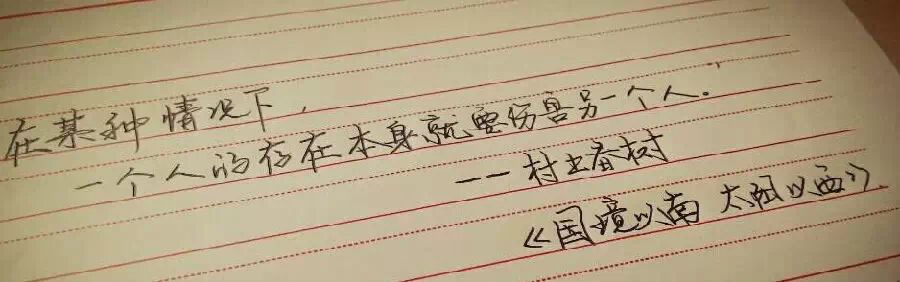 在某种情况下,
一个人的存在本身就要伤害另一个人.
——村上春树
《国境以南 太阳以西》